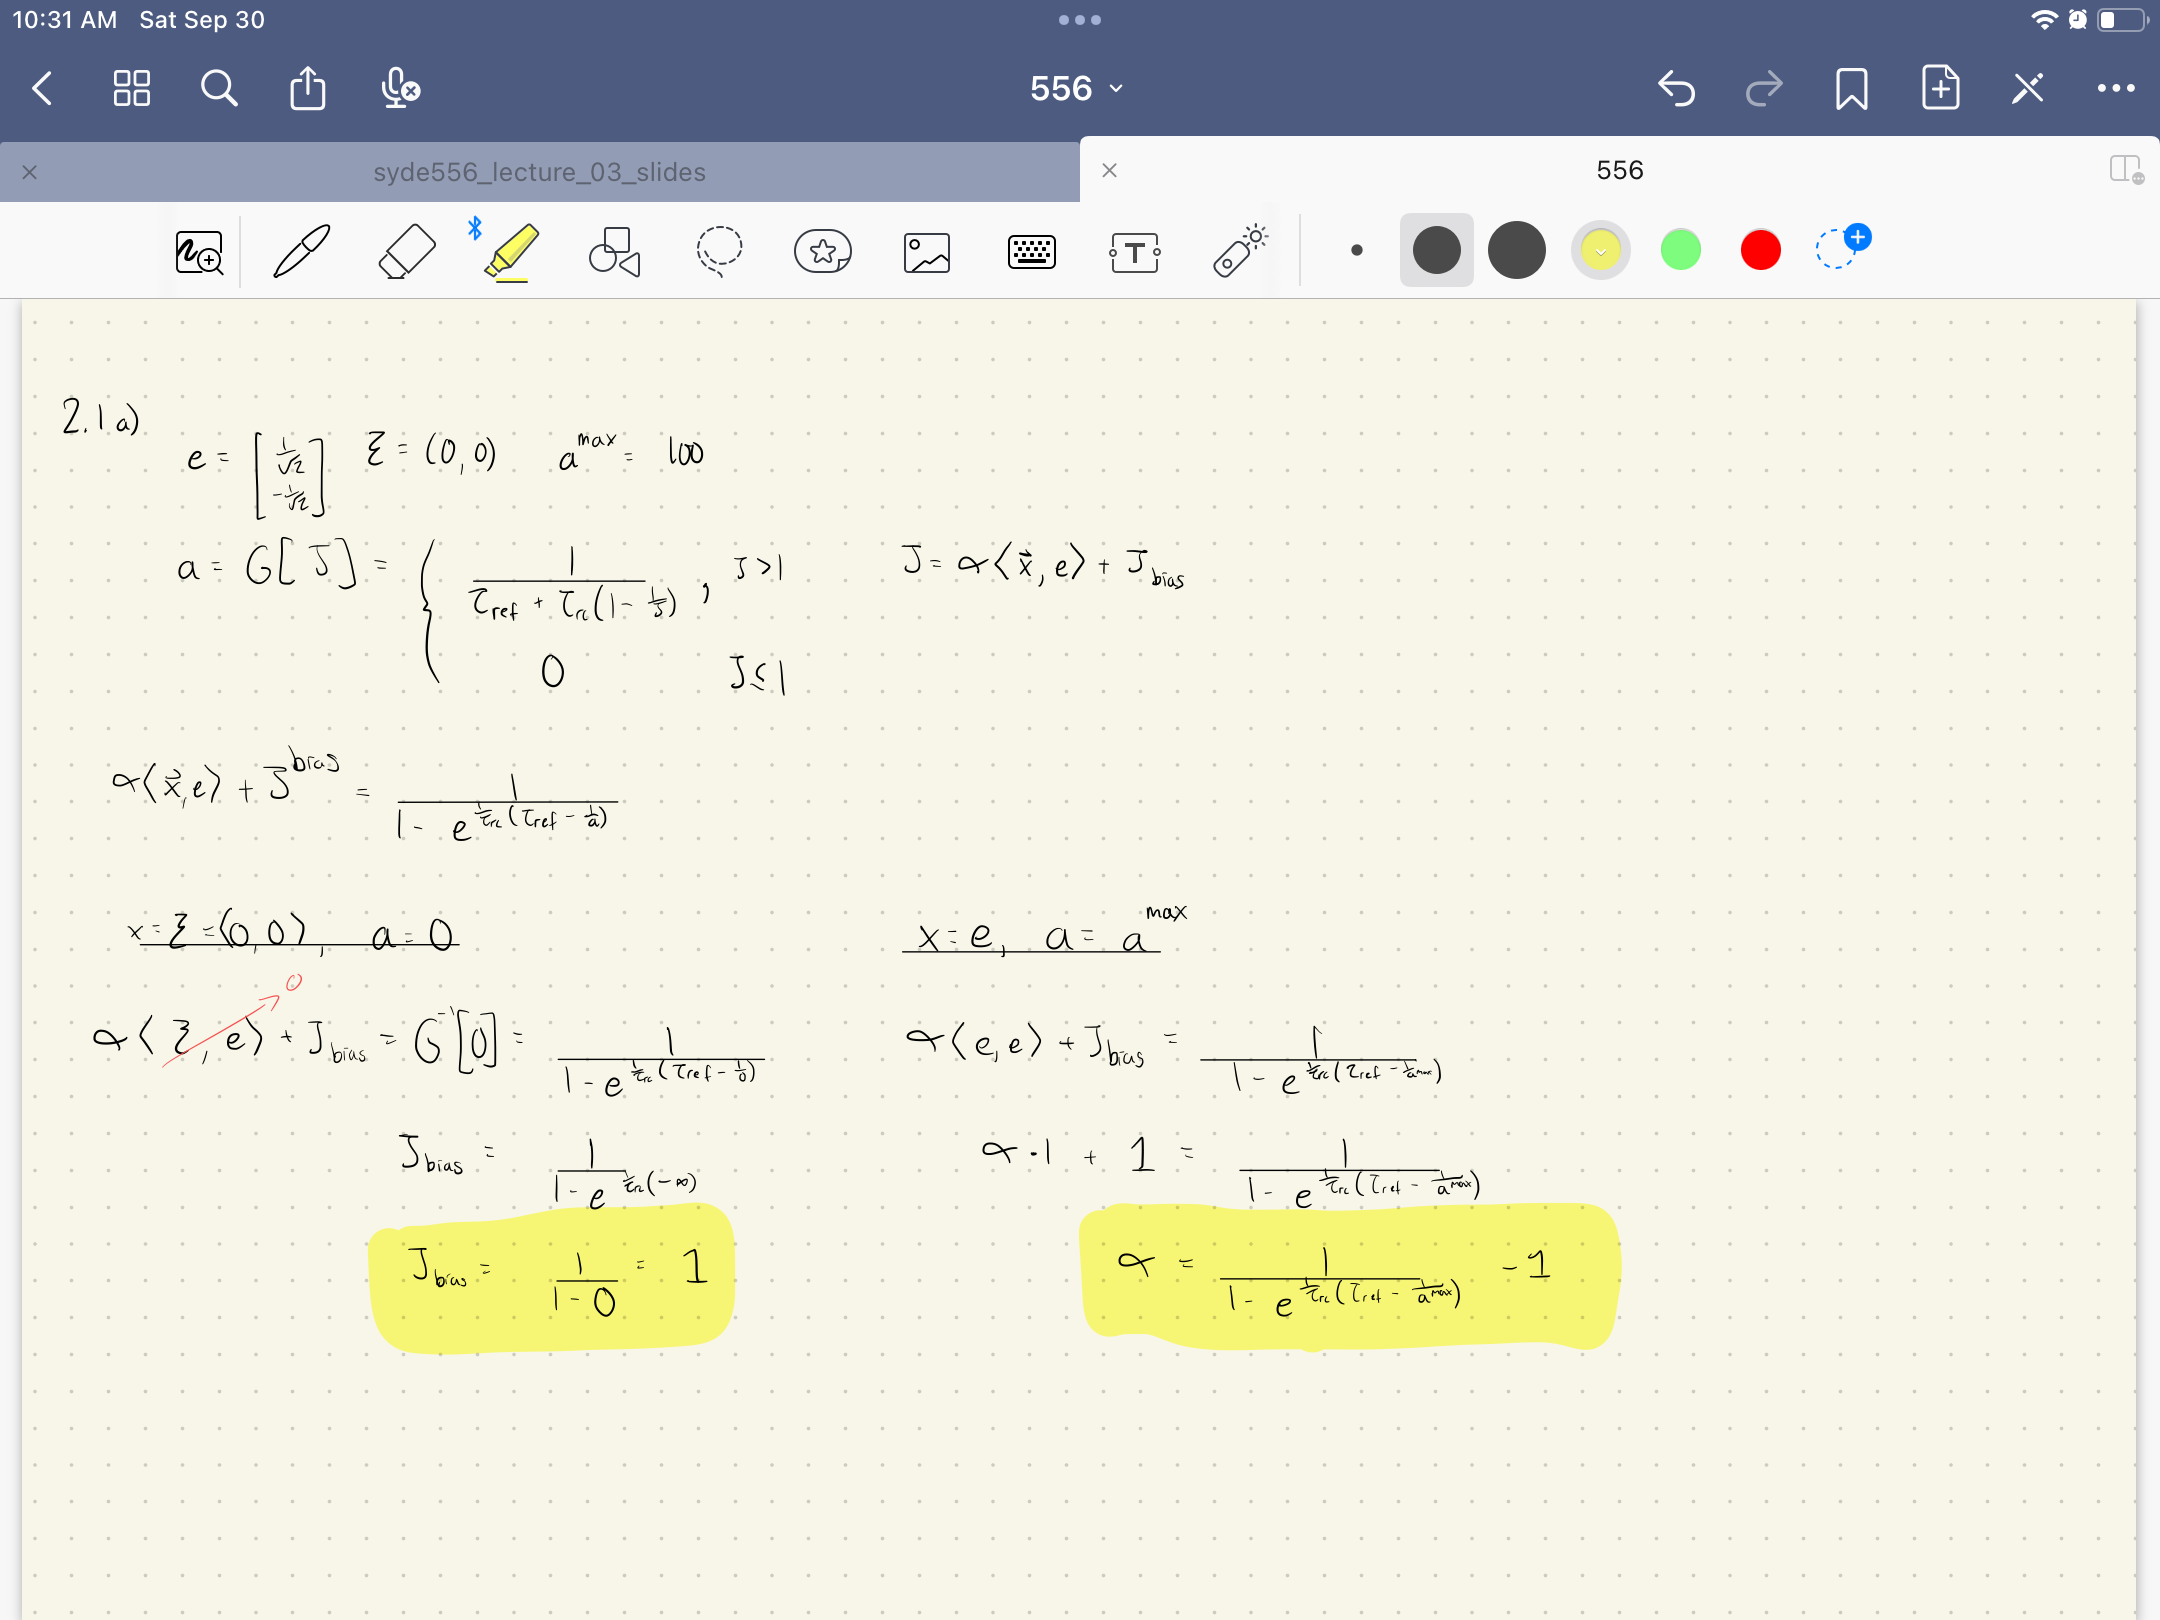 10:31 AM Sat Sep 30
556
syde556_lecture_03_slides
556
T
2.1 a)
e = [1/√2, -1/√2] ξ = (0, 0) a^max = 100
a = G[J] = { 1 / (τ_ref + τ_rc(1 - 1/J)), J > 1
0 J ≤ 1
J = α⟨x⃗, e⟩ + J_bias
α⟨x⃗, e⟩ + J^bias = 1 / (1 - e^(1/τ_rc (τ_ref - 1/a)))
x = ξ = (0, 0), a = 0
0
α⟨ξ, e⟩ + J_bias = G^-1[0] = 1 / (1 - e^(1/τ_rc (τ_ref - 1/0)))
J_bias = 1 / (1 - e^(1/τ_rc (-∞)))
J_bias = 1 / (1 - 0) = 1
x = e, a = a^max
α⟨e, e⟩ + J_bias = 1 / (1 - e^(1/τ_rc (τ_ref - 1/a^max)))
α · 1 + 1 = 1 / (1 - e^(1/τ_rc (τ_ref - 1/a^max)))
α = 1 / (1 - e^(1/τ_rc (τ_ref - 1/a^max))) - 1